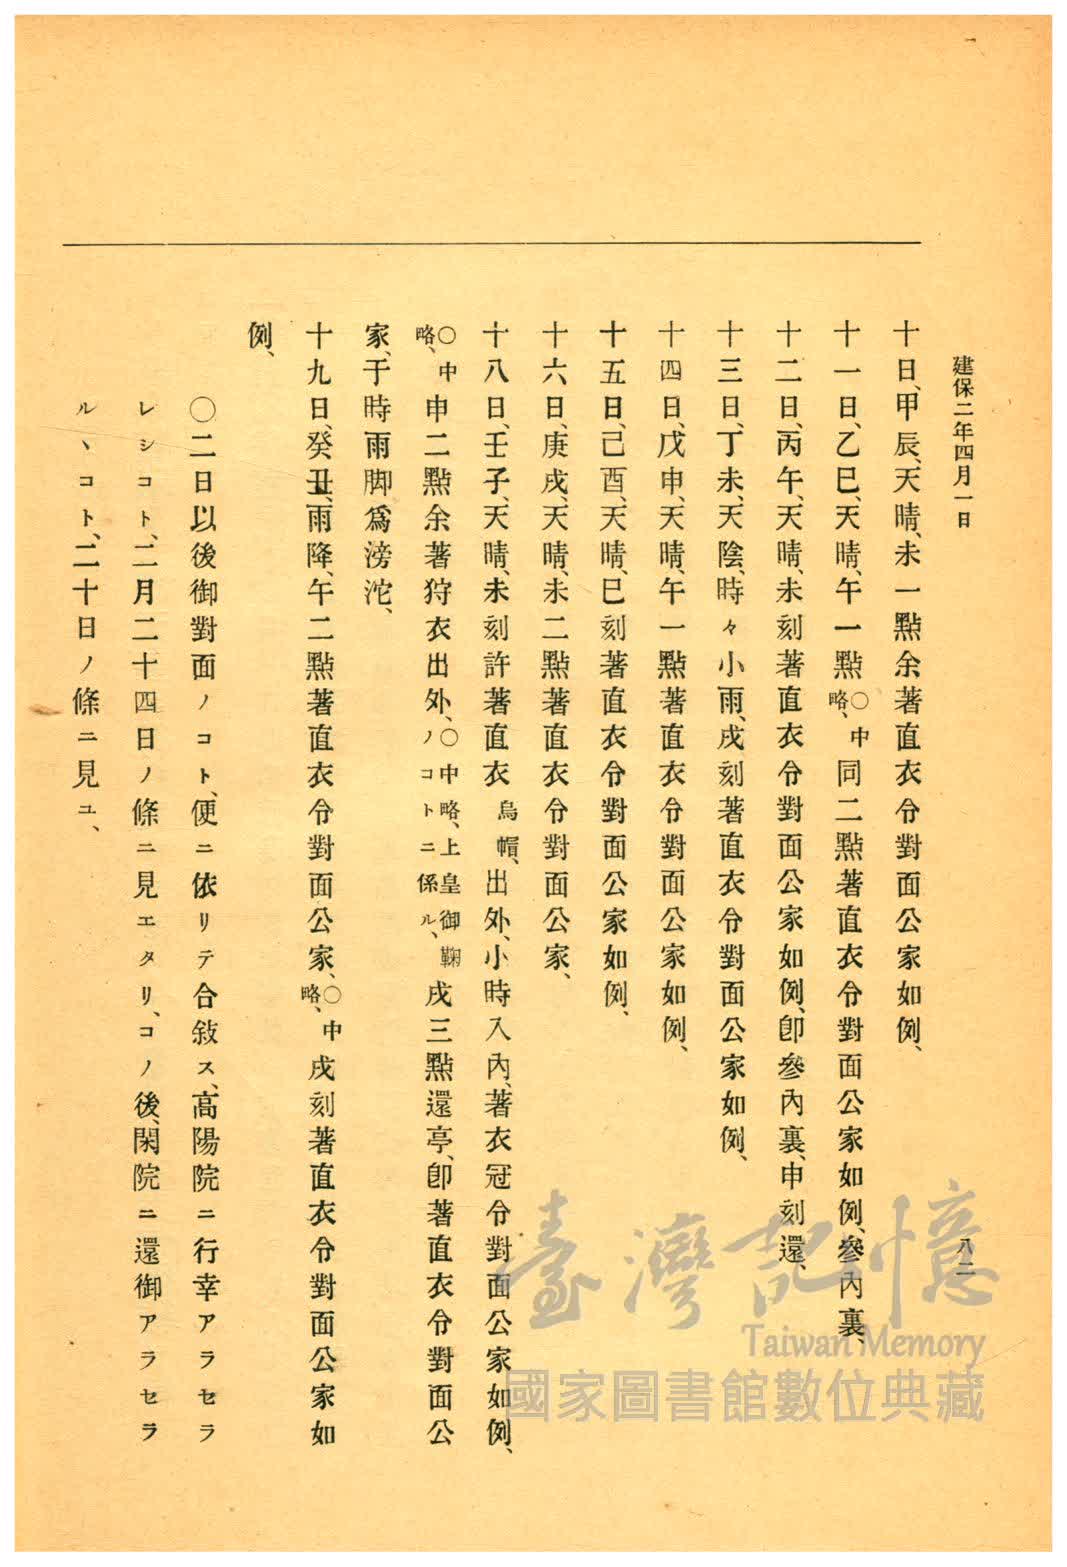 建保二年四月一日
八二
十日、甲辰、天晴、未一點余著直衣令對面公家如例、
十一日、乙巳、天晴、午一點〇中略、同二點著直衣令對面公家如例、參內裏、
十二日、丙午、天晴、未刻著直衣令對面公家如例、卽參內裏、申刻還、
十三日、丁未、天陰、時々小雨、戌刻著直衣令對面公家如例、
十四日、戊申、天晴、午一點著直衣令對面公家如例、
十五日、己酉、天晴、巳刻著直衣令對面公家如例、
十六日、庚戌、天晴、未二點著直衣令對面公家、
十八日、壬子、天晴、未刻許著直衣烏帽、出外、小時入內、著衣冠令對面公家如例、
〇中略、申二點余著狩衣出外、〇中略、上皇御鞠ノコトニ係ル、戌三點還亭、卽著直衣令對面公
家、于時雨脚爲滂沱、
十九日、癸丑、雨降、午二點著直衣令對面公家、〇中略、戌刻著直衣令對面公家如
例、
〇二日以後御對面ノコト、便ニ依リテ合敍ス、高陽院ニ行幸アラセラ
レシコト、二月二十四日ノ條ニ見エタリ、コノ後、閑院ニ還御アラセラ
ルヽコト、二十日ノ條ニ見ユ、
臺灣記憶
Taiwan Memory
國家圖書館數位典藏